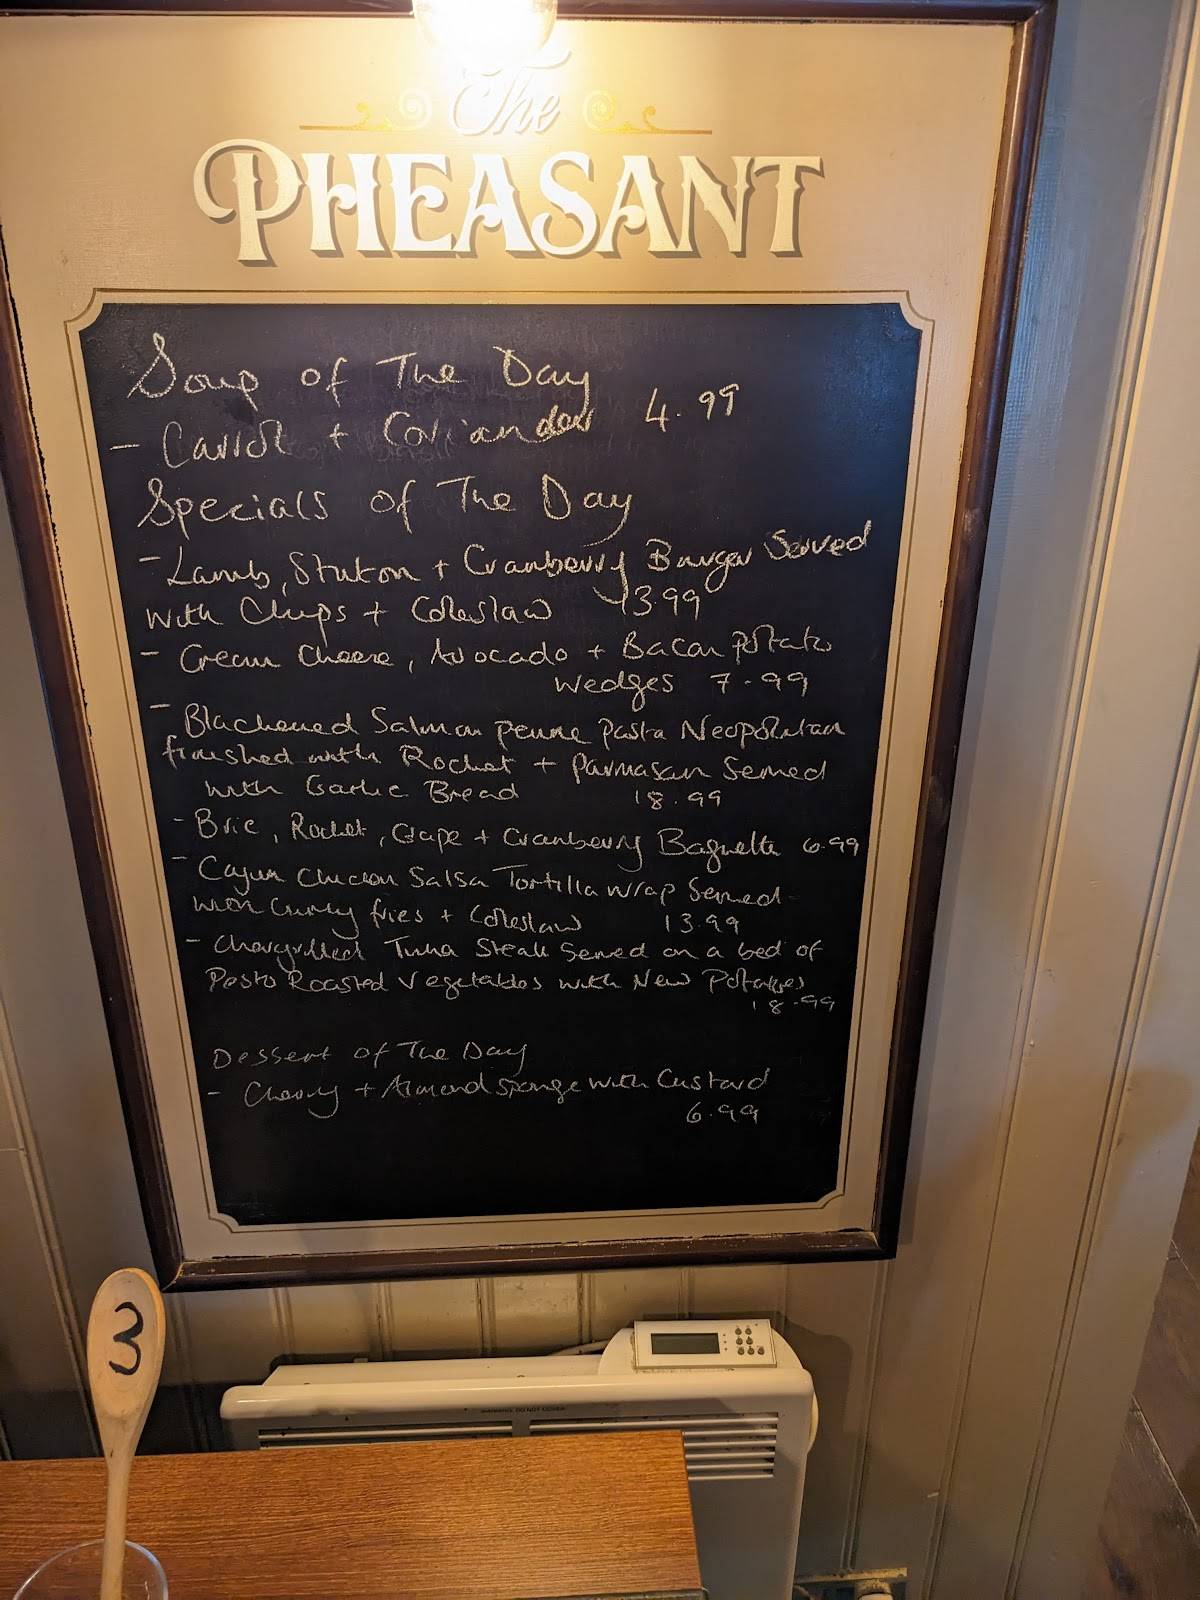 The
PHEASANT
Soup of The Day
- Carrot + Coriander 4.99
Specials of The Day
- Lamb, Stilton + Cranberry Burger Served
with Chips + Coleslaw 13.99
- Cream Cheese, Avocado + Bacon potato
wedges 7.99
- Blackened Salmon penne pasta Neopolitan
finished with Rocket + parmasan Served
with Garlic Bread 18.99
- Brie, Rocket, Grape + Cranberry Baguette 6.99
- Cajun Chicken Salsa Tortilla wrap Served
with Curly fries + Coleslaw 13.99
- Chargrilled Tuna Steak Served on a bed of
Pesto Roasted Vegetables with New Potatoes
18.99
Dessert of The Day
- Cherry + Almond sponge with Custard
6.99
3
WARNING: DO NOT COVER